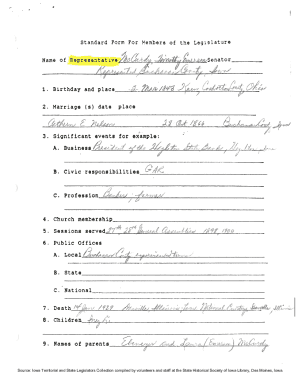 Standard Form For Members of the Legislature
Name of Representative McCurdy, Timothy Emerson Senator
Represented Buchanan County, Iowa
1. Birthday and place 2 Mar 1848 Keene, Coshocton County, Ohio
2. Marriage (s) date place
E. Nelson 28 Oct 1866 Buchanan County, Iowa
3. Significant events for example:
A. Business President of the State Bank,
B. Civic responsibilities GAR
C. Profession Banker, farmer
4. Church membership
5. Sessions served 27th, 28th General Assemblies 1898, 1900
6. Public Offices
A. Local Buchanan County
B. State
C. National
7. Death 1929 National
8. Children
9. Names of parents Ebenezer and McCurdy
Source: Iowa Territorial and State Legislators Collection compiled by volunteers and staff at the State Historical Society of Iowa Library, Des Moines, Iowa.